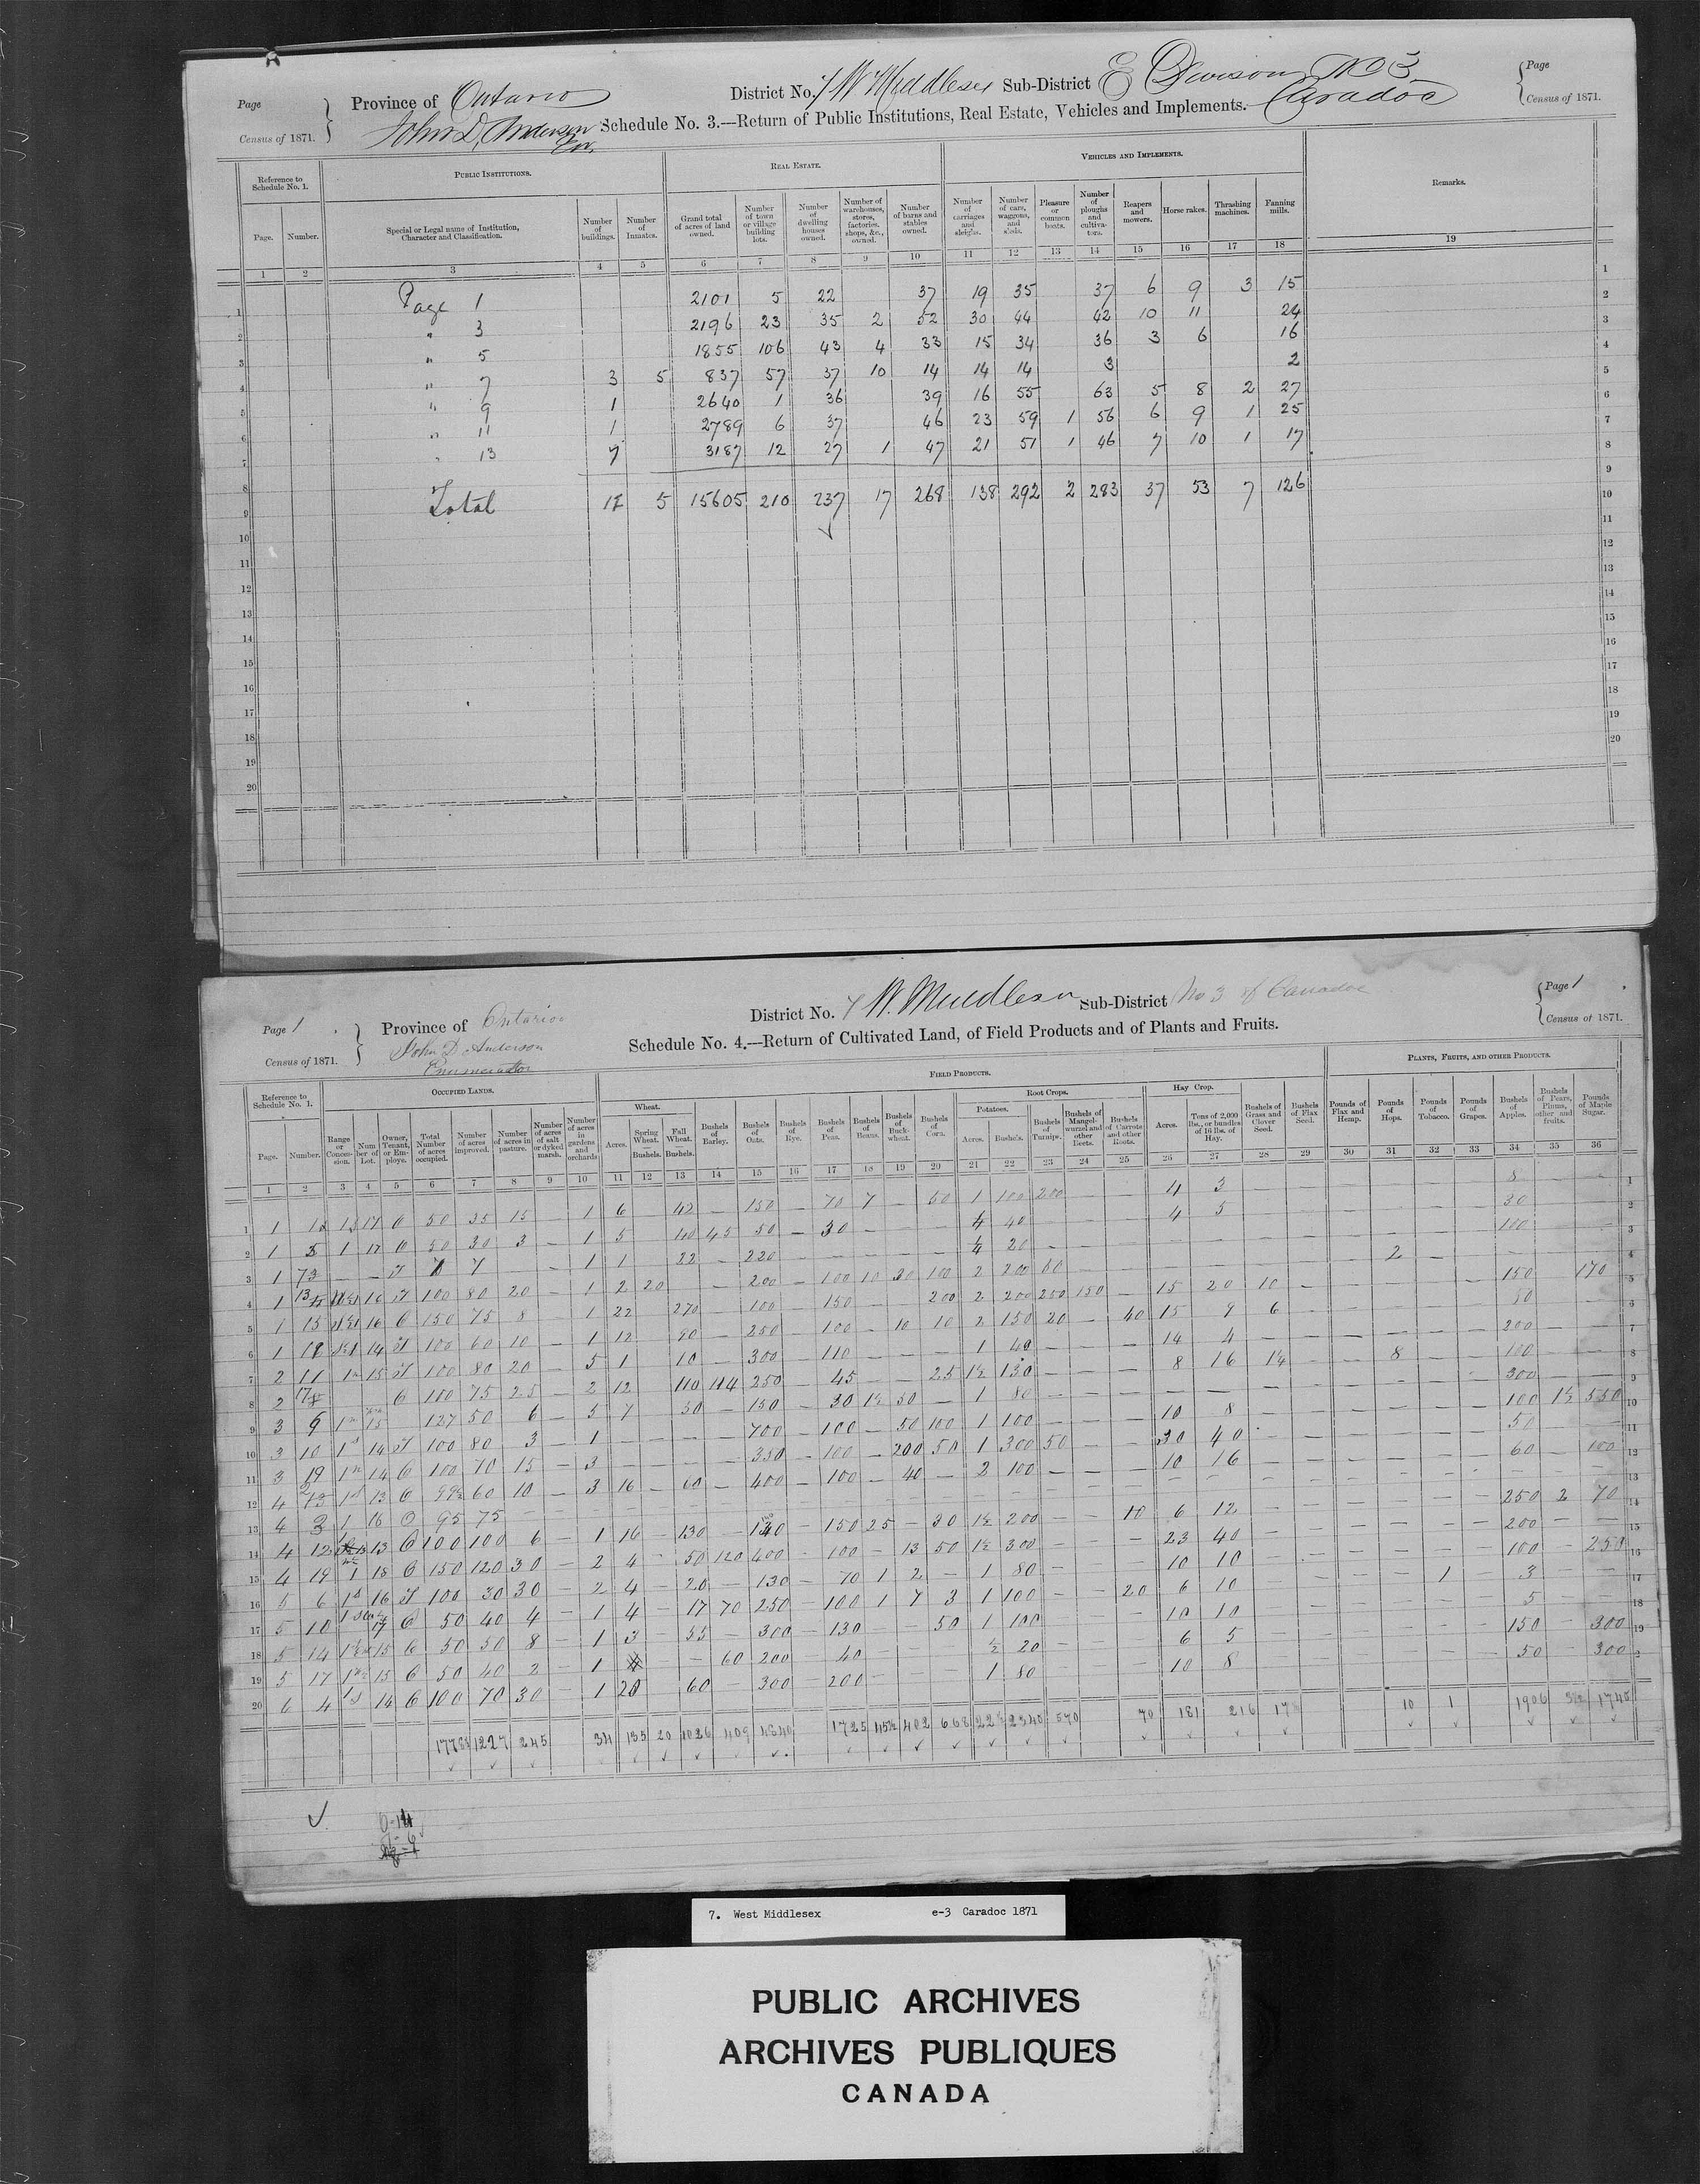 Page
Census of 1871.
Province of Ontario
John D. Anderson En.
District No. 7 W Middlesex Sub-District E Division No 3 Caradoc
Page
Census of 1871.
Schedule No. 3.—Return of Public Institutions, Real Estate, Vehicles and Implements.
Reference to Schedule No. 1.
PUBLIC INSTITUTIONS.
REAL ESTATE.
VEHICLES AND IMPLEMENTS.
Remarks.
Page. Number. Special or Legal name of Institution, Character and Classification. Number of buildings. Number of Inmates. Grand total of acres of land owned. Number of town or village building lots. Number of dwelling houses owned. Number of warehouses, stores, factories, shops, &c., owned. Number of barns and stables owned. Number of carriages and sleighs. Number of cars, waggons, and sleds. Pleasure or common boats. Number of ploughs and cultivators. Reapers and mowers. Horse rakes. Thrashing machines. Fanning mills.
1 2 3 4 5 6 7 8 9 10 11 12 13 14 15 16 17 18 19
Page 1 2101 5 22 37 19 35 37 6 9 3 15
" 3 2196 23 35 2 52 30 44 42 10 11 24
" 5 1855 106 43 4 33 15 34 36 3 6 16
" 7 3 5 837 57 37 10 14 14 14 3 2
" 9 1 2640 1 36 39 16 55 63 5 8 2 27
" 11 1 2789 6 37 46 23 59 1 56 6 9 1 25
" 13 7 3187 12 27 1 47 21 51 1 46 7 10 1 17
Total 12 5 15605 210 237 17 268 138 292 2 283 37 53 7 126
Page 1
Census of 1871.
Province of Ontario
John D. Anderson
Enumerator
District No. 7 W. Middlesex Sub-District No 3 of Caradoc
Page 1
Census of 1871.
Schedule No. 4.—Return of Cultivated Land, of Field Products and of Plants and Fruits.
Reference to Schedule No. 1.
OCCUPIED LANDS.
FIELD PRODUCTS.
PLANTS, FRUITS, AND OTHER PRODUCTS.
Wheat. Root Crops. Potatoes. Hay Crop.
Page. Number. Range or Concession. Number of Lot. Owner, Tenant, or Employe. Total Number of acres occupied. Number of acres improved. Number of acres in pasture. Number of acres of salt or dyked marsh. Number of acres in gardens and orchards Acres. Spring Wheat. Bushels. Fall Wheat. Bushels. Bushels of Barley. Bushels of Oats. Bushels of Rye. Bushels of Peas. Bushels of Beans. Bushels of Buckwheat. Bushels of Corn. Acres. Bushels. Bushels of Turnips. Bushels of Mangel-wurzel and other Beets. Bushels of Carrots and other Roots. Acres. Tons of 2,000 lbs., or bundles of 16 lbs. of Hay. Bushels of Grass and Clover Seed. Bushels of Flax Seed. Pounds of Flax and Hemp. Pounds of Hops. Pounds of Tobacco. Pounds of Grapes. Bushels of Apples. Bushels of Pears, Plums, and other fruits. Pounds of Maple Sugar.
1 2 3 4 5 6 7 8 9 10 11 12 13 14 15 16 17 18 19 20 21 22 23 24 25 26 27 28 29 30 31 32 33 34 35 36
1 1 17 0 50 35 15 — 1 6 42 — 150 — 70 7 — 50 1 100 200 — — 4 3 8
2 1 5 1 17 0 50 30 3 — 1 5 40 45 50 — 30 — — — ¼ 40 4 5 30
3 1 7 — 1 1 22 — 220 ¼ 20 100
4 1 16 T 100 80 20 — 1 2 20 200 — 100 10 30 100 2 200 2
5 1 15 16 0 150 75 8 — 1 22 270 — 100 — 150 200 2 200 250 150 — 15 20 10 150 170
6 1 14 T 100 60 10 — 1 12 90 — 250 — 100 — 10 10 2 150 20 — 40 15 9 6
7 2 11 15 T 100 80 20 — 5 1 10 — 300 — 110 1 40 14 4 200
8 2 0 100 75 25 — 2 12 110 114 250 45 25 1½ 130 8 16 8 100
9 3 9 15 127 50 6 — 5 7 30 — 150 — 30 1½ 30 — 1 80 300
10 3 10 14 T 100 80 3 — 1 700 — 100 — 50 100 1 100 10 8 100 1½ 550
11 3 19 14 0 100 70 15 — 3 350 — 100 — 200 50 1 300 50 30 40 50
12 4 13 0 99½ 60 10 — 3 16 — 60 — 400 — 100 — 40 — 2 100 10 16 60 — 100
13 4 3 1 16 0 95 75
14 4 12 13 0 100 100 6 — 1 16 — 130 — — 150 25 — 30 1½ 200 — — 10 6 12 250 2 70
15 4 19 1 18 0 150 120 30 — 2 4 — 50 120 400 — 100 — 13 50 1½ 300 — 23 40 200
16 5 6 16 T 100 30 30 — 2 4 — 20 — 130 — 70 1 2 — 1 80 10 10 100 — 250
17 5 10 17 0 50 40 4 — 1 4 — 17 70 250 — 100 1 7 3 1 100 — — 20 6 10 1 3
18 5 14 15 0 50 50 8 — 1 3 — 55 — 300 — 130 50 1 100 10 10 5
19 5 17 15 0 50 40 2 — 1 — 60 200 — 40 ½ 20 6 5 150 — 300
20 6 4 14 0 100 70 30 — 1 20 60 — 300 — 200 1 80 10 8 50 — 300
1227 245 34 135 20 1026 409 1725 402 668 2340 570 70 181 216 10 1 1906 1745
7. West Middlesex e-3 Caradoc 1871
PUBLIC ARCHIVES
ARCHIVES PUBLIQUES
CANADA